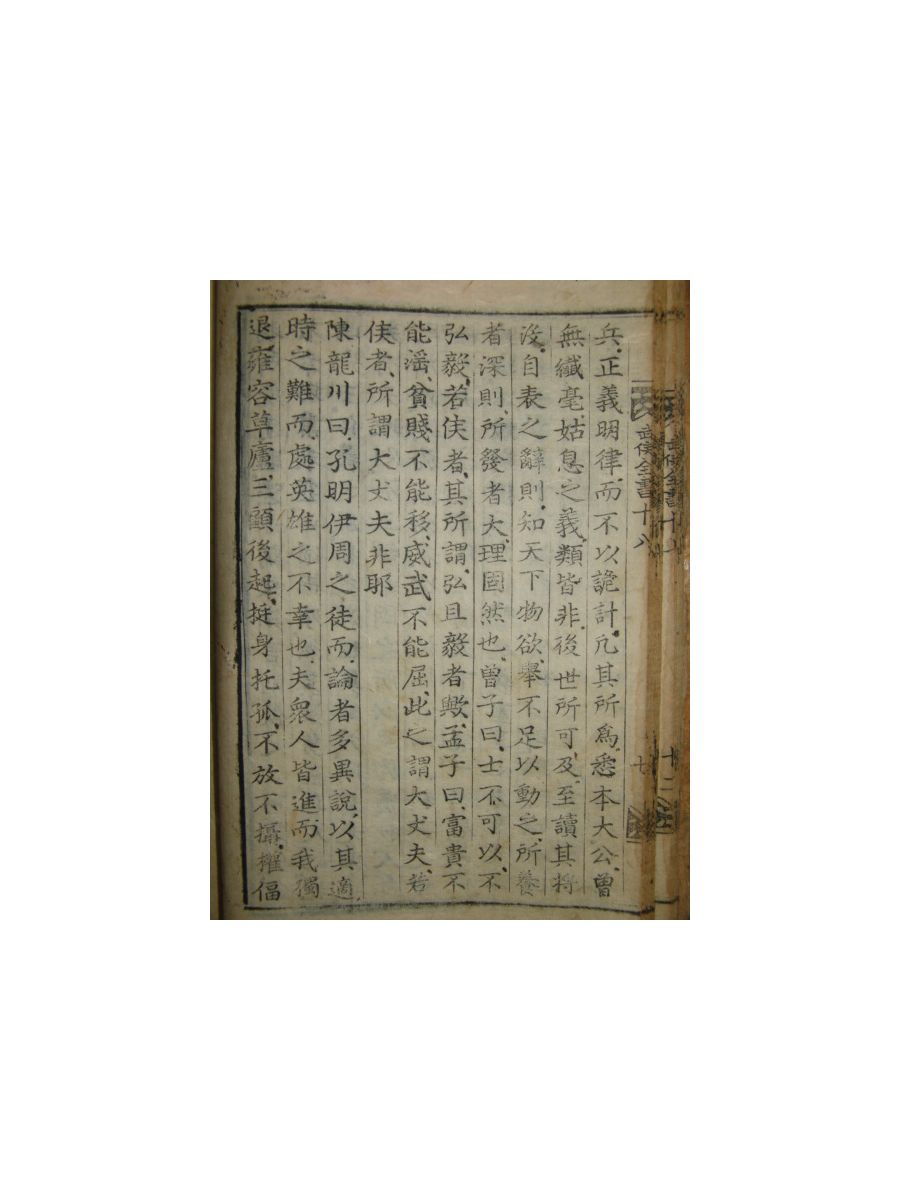 兵、正義明律、而不以詭計、凡其所爲、悉本大公、曾
無纖毫姑息之義、類皆非後世所可及、至讀其將
沒、自表之辭則、知天下物欲、擧不足以動之、所養
者深則、所發者大、理固然也、曾子曰、士不可以不
弘毅、若侯者、其所謂弘且毅者歟、孟子曰、富貴不
能淫、貧賤不能移、威武不能屈、此之謂大丈夫、若
侯者、所謂大丈夫非耶
陳龍川曰、孔明伊周之徒而、論者多異說、以其適
時之難而、處英雄之不幸也、夫衆人皆進而、我獨
退、雍容草廬、三顧後起、挺身托孤、不放不攝、權偪
武侯全書十八